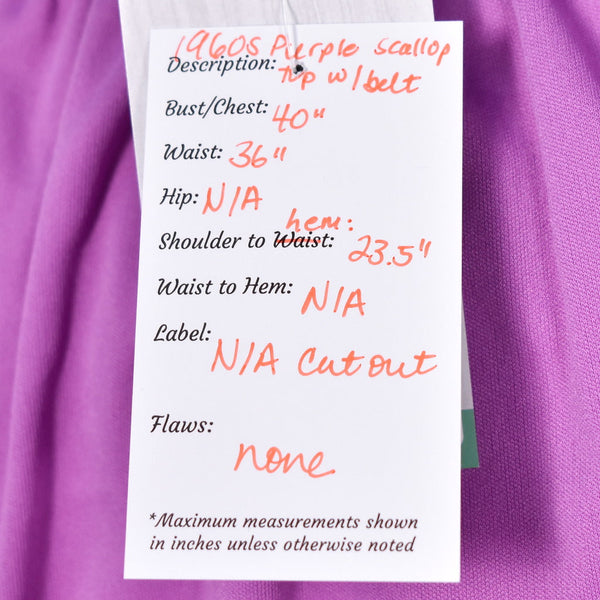 1960s Purple scallop
Description: top w/belt
Bust/Chest: 40"
Waist: 36"
Hip: N/A
hem:
Shoulder to Waist: 23.5"
Waist to Hem: N/A
Label: N/A Cut out
Flaws:
none
*Maximum measurements shown
in inches unless otherwise noted